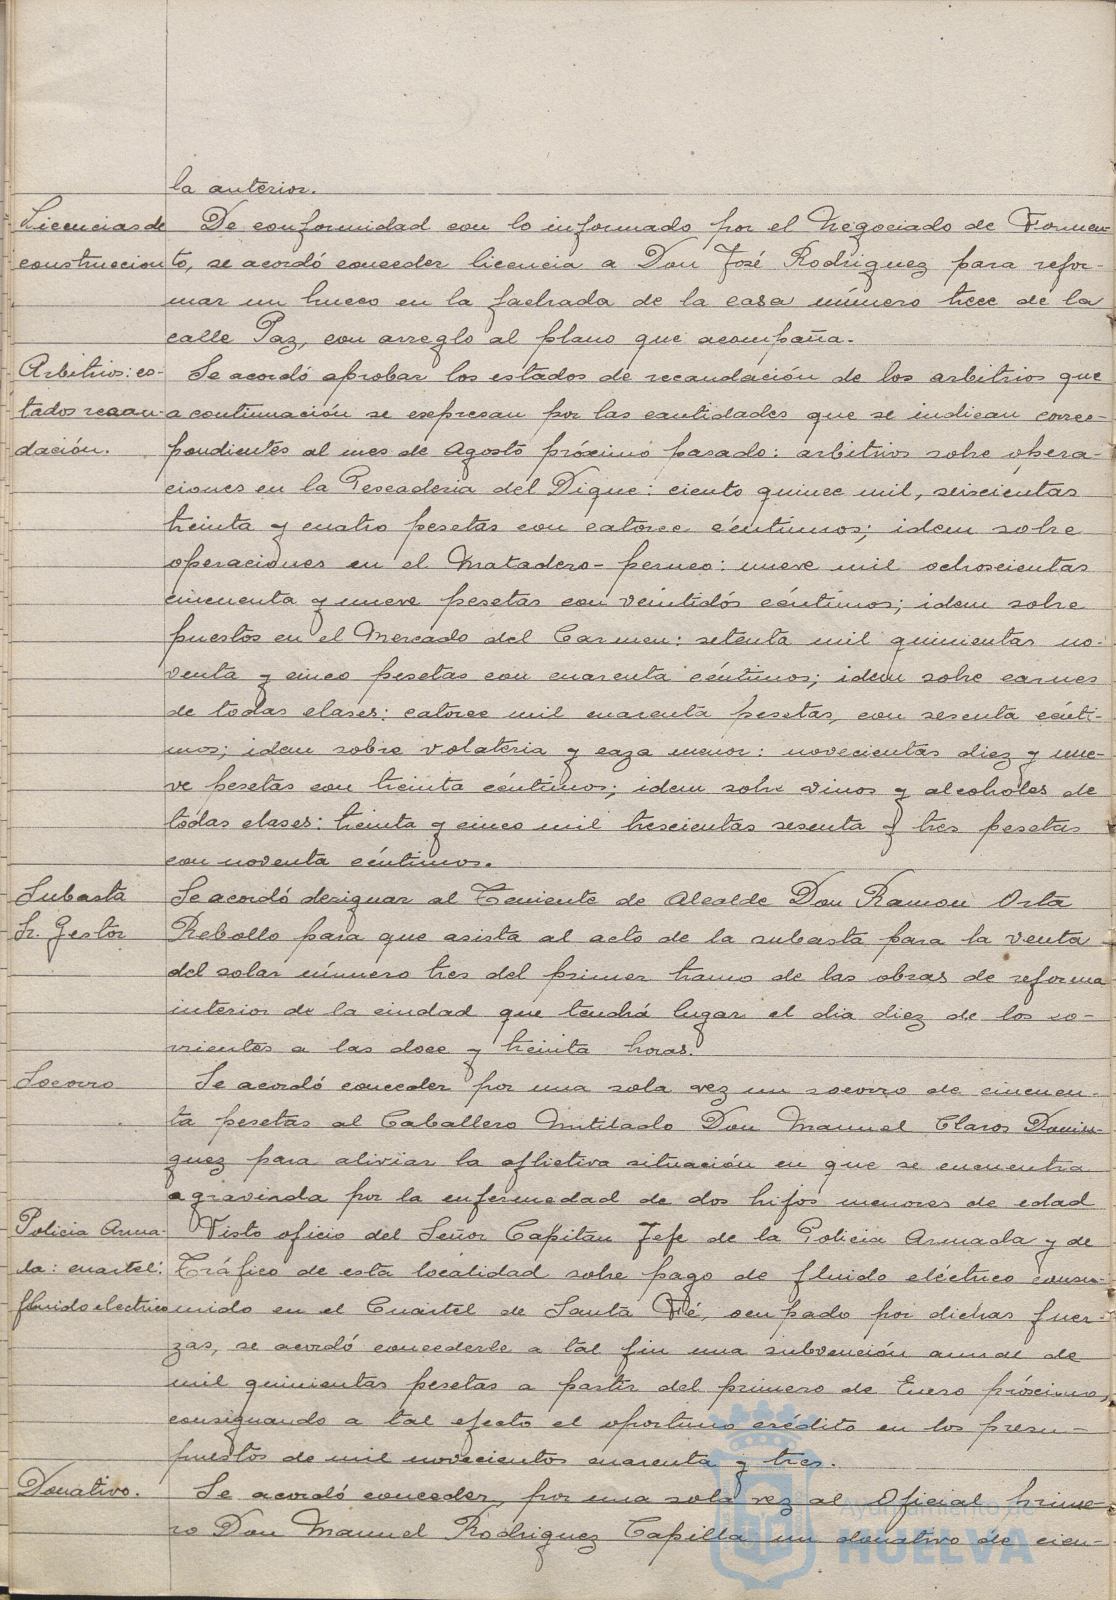 la anterior.
Licencias de De conformidad con lo informado por el Negociado de Fomen-
construccion to, se acordó conceder licencia a Don José Rodriguez para refor-
mar un hueco en la fachada de la casa número trece de la
calle Paz, con arreglo al plano que acompaña.
Arbitrios: es- Se acordó aprobar los estados de recaudación de los arbitrios que
tados recau- a continuación se expresan por las cantidades que se indican corres-
dación. pondientes al mes de Agosto próximo pasado: arbitrios sobre opera-
ciones en la Pescaderia del Dique: ciento quince mil, seiscientas
treinta y cuatro pesetas con catorce céntimos; idem sobre
operaciones en el Matadero-perneo: nueve mil ochoscientas
cincuenta y nueve pesetas con veintidós céntimos; idem sobre
puestos en el Mercado del Carmen: setenta mil quinientas no-
venta y cinco pesetas con cuarenta céntimos; idem sobre carnes
de todas clases: catorce mil cuarenta pesetas, con sesenta cénti-
mos; idem sobre volateria y caza menor: novecientas diez y nue-
ve pesetas con treinta céntimos; idem sobre vinos y alcoholes de
todas clases: treinta y cinco mil trescientas sesenta y tres pesetas
con noventa céntimos.
Subasta Se acordó designar al Teniente de Alcalde Don Ramon Orta
Sr. Gestor Rebollo para que asista al acto de la subasta para la venta
del solar número tres del primer tramo de las obras de reforma
interior de la ciudad que tendrá lugar el dia diez de los co-
rrientes a las doce y treinta horas.
Socorro Se acordó conceder por una sola vez un socorro de cincuen-
ta pesetas al Caballero Mutilado Don Manuel Claros Domin-
guez para aliviar la aflictiva situación en que se encuentra
agravada por la enfermedad de dos hijos menores de edad
Policia Arma- Visto oficio del Señor Capitan Jefe de la Policia Armada y de
da: cuartel: Tráfico de esta localidad sobre pago de fluido eléctrico consu-
fluido electrico mido en el Cuartel de Santa Fé, ocupado por dichas fuer-
zas, se acordó concederle a tal fin una subvención anual de
mil quinientas pesetas a partir del primero de Enero próximo,
consignando a tal efecto el oportuno crédito en los presu-
puestos de mil novecientos cuarenta y tres.
Donativo. Se acordó conceder, por una sola vez al Oficial prime-
ro Don Manuel Rodriguez Capilla un donativo de cien-
Ayuntamiento de
HUELVA